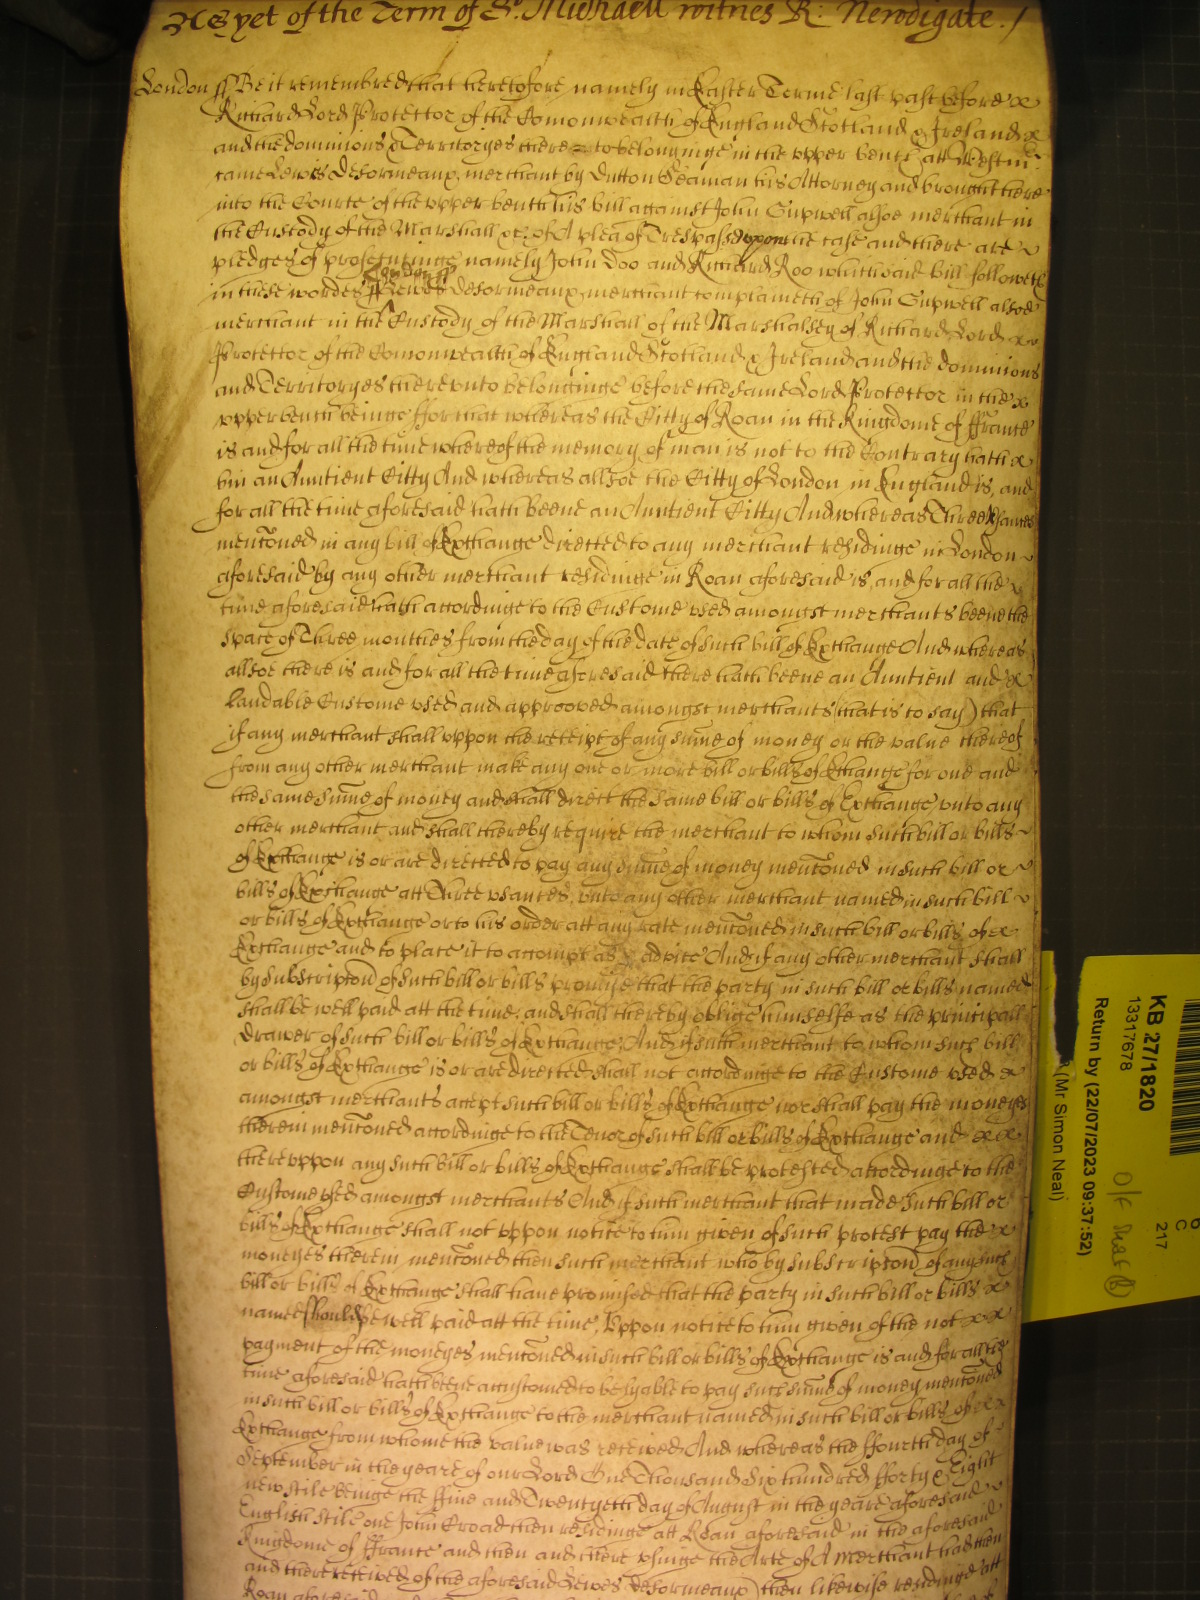 As yet of the Term of St. Michaell witnes R: Newdigate. /
London ss Be it remembred that heretofore namely in Easter Terme last past before
Richard Lord Protector of the Comonwealth of England Scotland & Ireland
and the dominions & Territoryes there to belonginge in the upper bench att Westmr
came Lewis Desormeaux merchant by Dutton Seaman his Attorney and brought here
into the Courte of the upper bench his bill against John Cupwell alsoe merchant in
the Custody of the Marshall &c of A plea of Trespasse upon the case and there are
pledges of prosecutinge namely John Doo and Richard Roo which said bill followeth
in these wordes London ss Lewes Desormeaux merchant complaineth of John Cupwell alsoe
merchant in the Custody of the Marshall of the Marshalsey of Richard Lord
Protector of the Comonwealth of England Scotland & Ireland and the dominions
and Territoryes thereunto belonginge before the same Lord Protector in the
upper bench beinge ffor that whereas the Citty of Roan in the Kingdome of ffrance
is and for all the time whereof the memory of man is not to the Contrary hath
bin an Auntient Citty And whereas allsoe the Citty of London in England is, and
for all the time aforesaid hath beene an Auntient Citty And whereas Three Usances
mentoned in any bill of Exchange directed to any merchant residinge in London
aforesaid by any other merchant residinge in Roan aforesaid is, and for all the
time aforesaid hath accordinge to the Custome used amongst merchants beene the
space of Three monthes from the day of the date of such bill of Exchange And whereas
allsoe there is and for all the time aforesaid there hath beene an Auntient and
laudable Custome used and approoved amongst merchants (that is to say) that
if any merchant shall uppon the receipt of any sume of money or the value thereof
from any other merchant make any one or more bill or bills of Exchange for one and
the same sume of money and shall direct the same bill or bills of Exchange unto any
other merchant and shall thereby require the merchant to whom such bill or bills
of Exchange is or are directed to pay any sume of money mentoned in such bill or
bills of Exchange att Three usances, unto any other merchant named in such bill
or bills of Exchange or to his order att any rate mentoned in such bill or bills of
Exchange and to place it to accompt as & advice And if any other merchant shall
by subscripton of such bill or bills promise that the party in such bill or bills named
shall be well paid att the time, and shall thereby oblige himselfe as the principall
drawer of such bill or bills of Exchange, And if such merchant to whom such bill
or bills of Exchange is or are directed shall not accordinge to the Custome used
amongst merchants accept such bill or bills of Exchange nor shall pay the moneyes
therein mentoned accordinge to the Tenor of such bill or bills of Exchange and
thereuppon any such bill or bills of Exchange shall be protested accordinge to the
Custome used amongst merchants And if such merchant that made such bill or
bills of Exchange shall not uppon notice to him given of such protest pay the
moneyes therein mentoned then such merchant who by subscripton of any such
bill or bills of Exchange shall have promised that the party in such bill or bills
named should be well paid att the time, Uppon notice to him given of the not
payment of the moneyes mentoned in such bill or bills of Exchange is and for all the
time aforesaid hath bene accustomed to be lyable to pay such sume of money mentoned
in such bill or bills of Exchange to the merchant named in such bill or bills of
Exchange from whome the value was received And whereas the ffourth day of
September in the yeare of our Lord One Thousand Six hundred fforty & Eight
new stile beinge the ffive and Twentyeth day of August in the yeare aforesaid
English stile one John Croad then residinge att Roan aforesaid in the aforesaid
Kingdome of ffrance and then and there usinge the Arte of A merchant had then
and there received of the aforesaid Lewes Desormeaux) then likewise residinge att
Roan
KB 27/1820
13317678
Return by (22/07/2023 09:37:52)
(Mr Simon Neal)
C
217